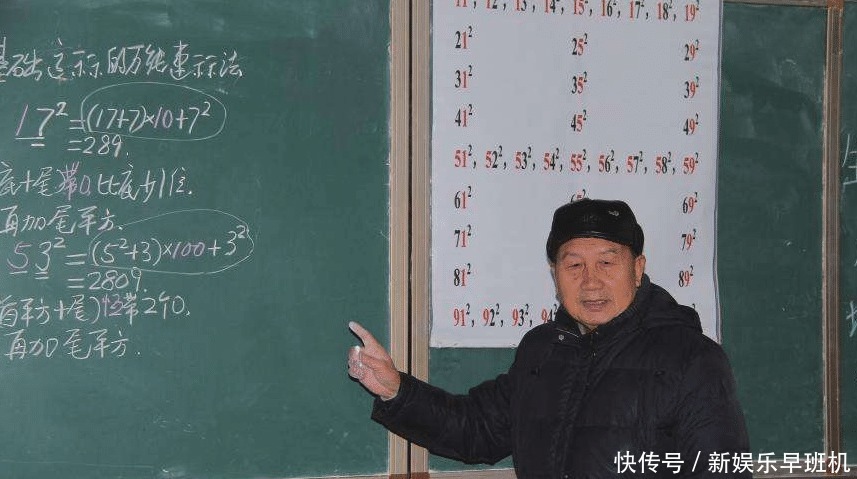 基础运算的万能速示法
17²=(17+7)×10+7²
=289.
底+尾带0比底少1位.
再加尾平方.
53²=(5²+3)×100+3²
=2809.
首平方+尾)恒带2个0.
再加尾平方.
11², 12², 13², 14², 15², 16², 17², 18², 19²
21² 25² 29²
31² 35² 39²
41² 45² 49²
51², 52², 53², 54², 55², 56², 57², 58², 59²
61² 65² 69²
71² 79²
81² 89²
91², 92², 93², 94²
快传号 / 新娱乐早班机